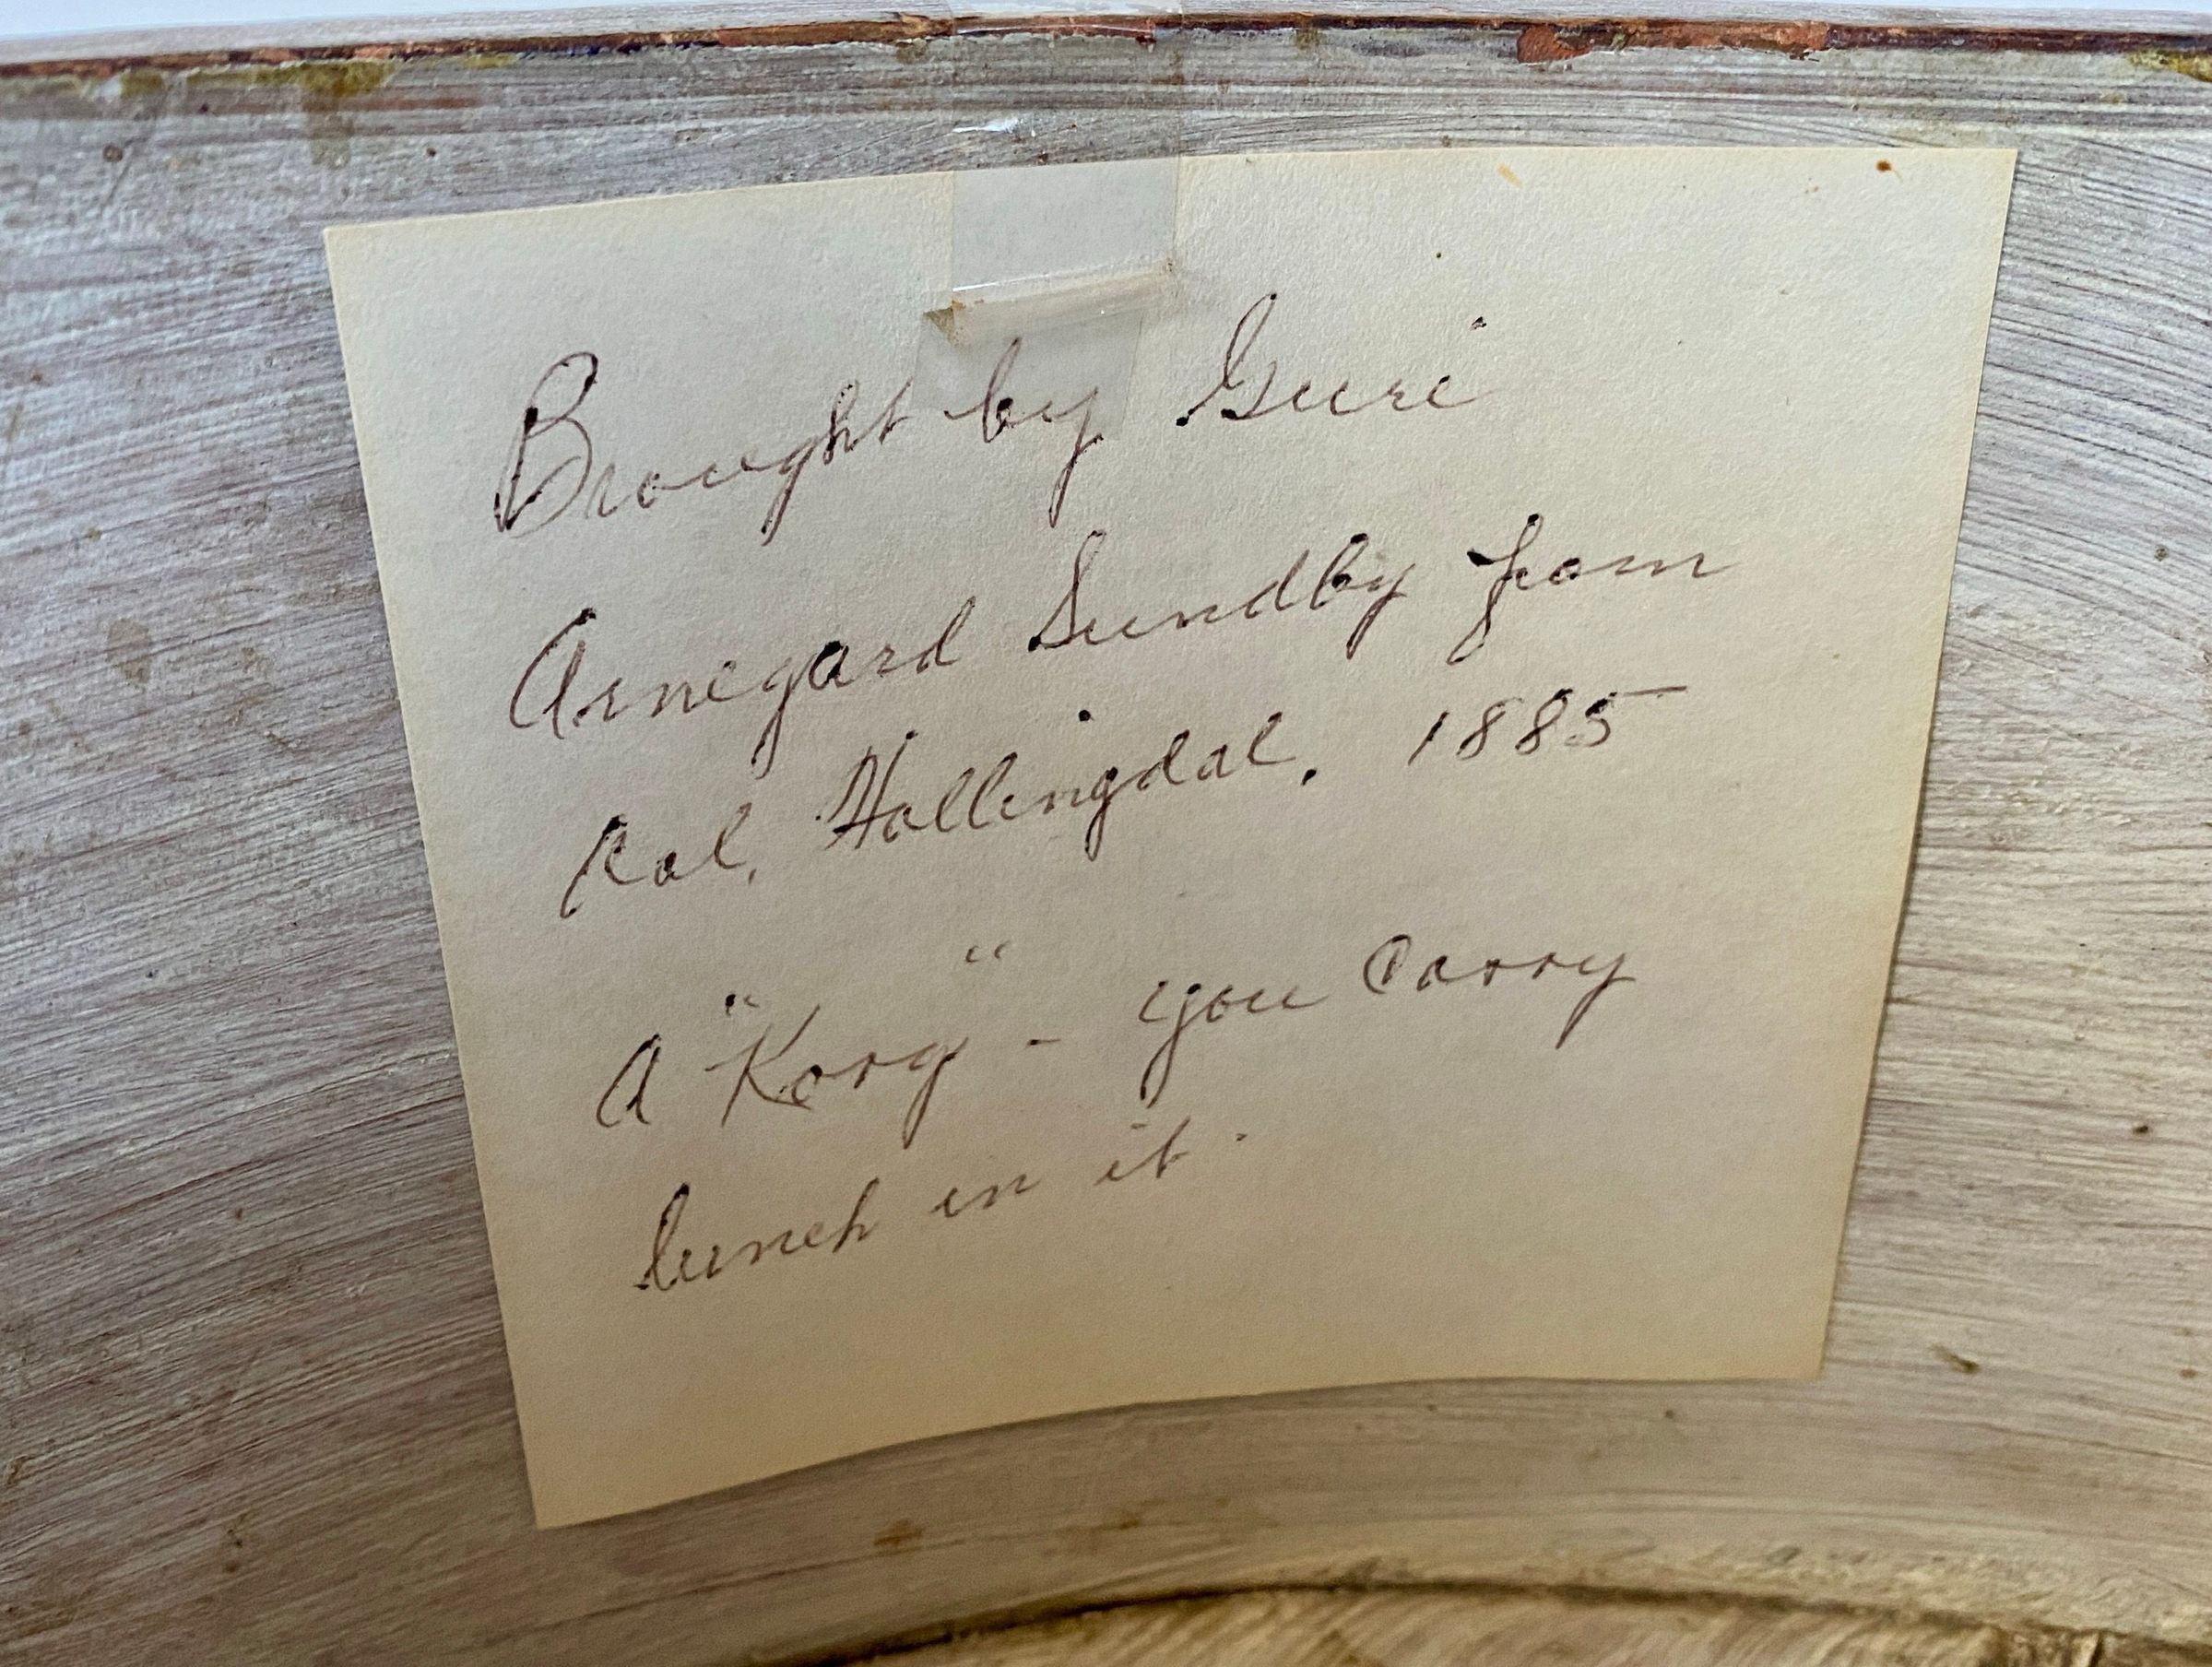 Brought by Guri
Arnegard Sundby from
Aal, Hallingdal. 1885
A "Korg" - you carry
lunch in it.